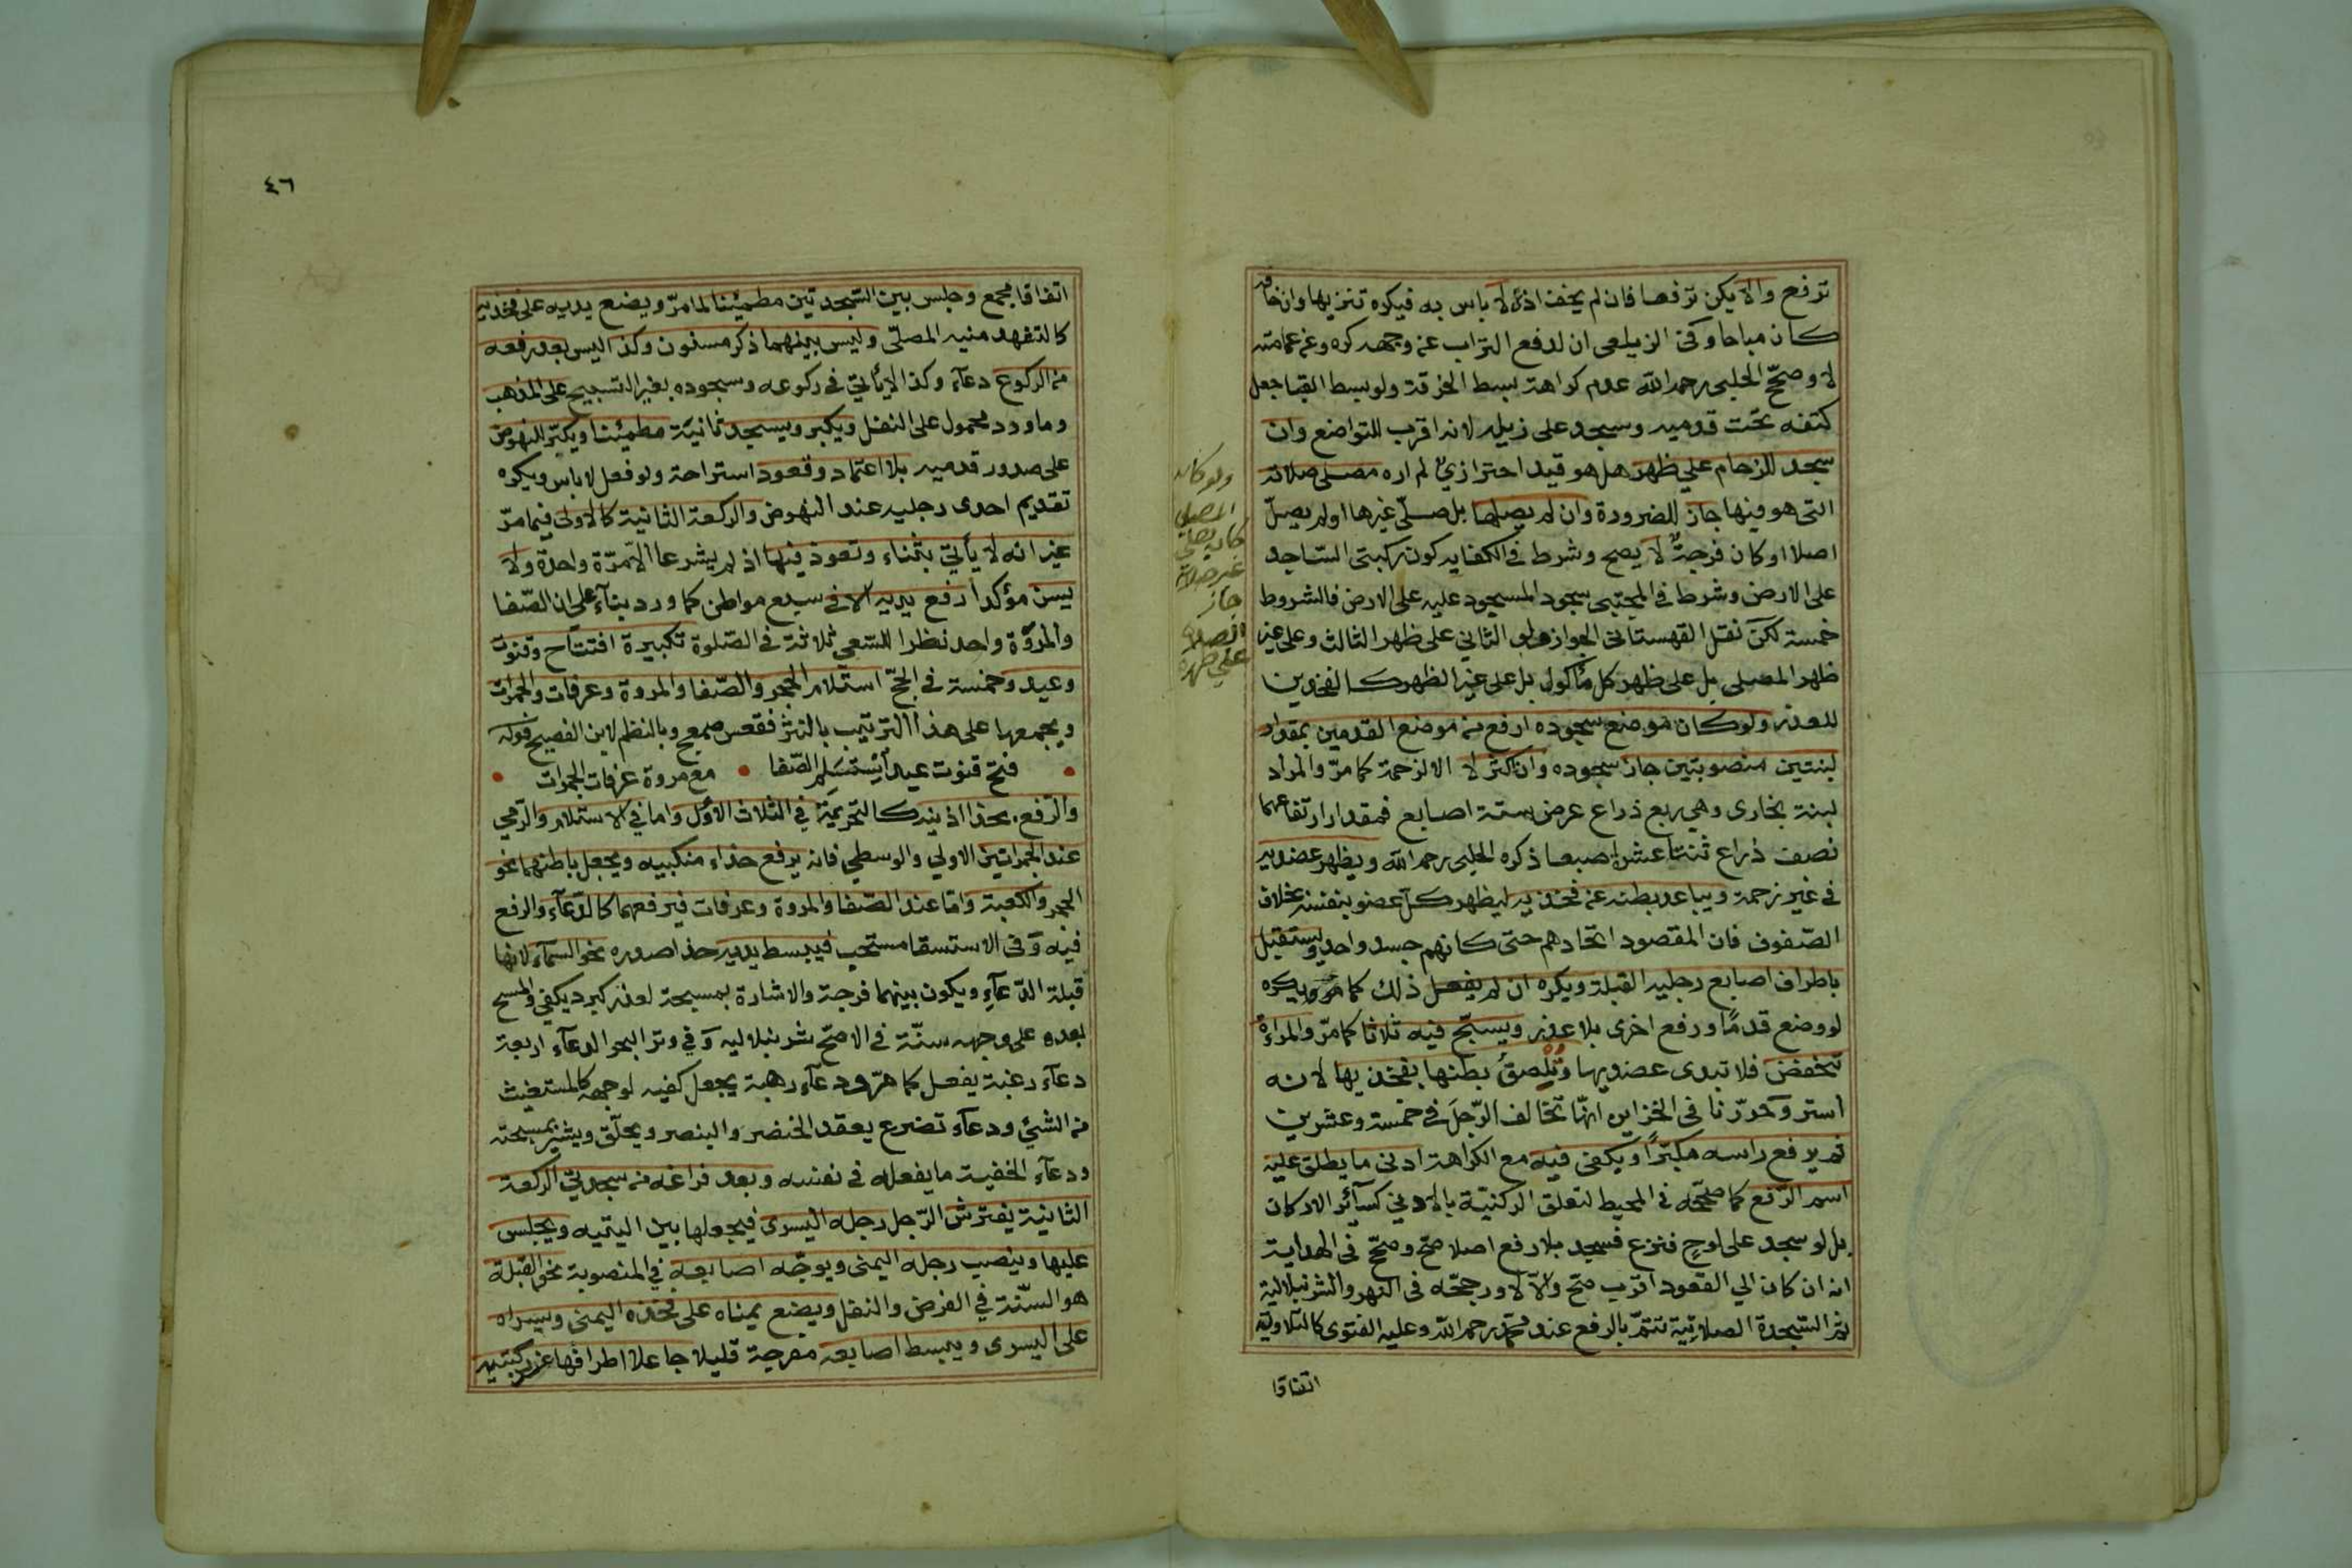 ترفع والا يكن ترفعا فان لم يخف اذى لا باس به فيكره تنزيها وان خافه
كان مباحا وفى الزيلعى ان لدفع التراب عن وجهه كره وعن عمامته
لا وصحّح الحلبى رحمه الله عدم كراهة بسط الخرقة ولو بسط القبا جعل
كتفه تحت قدميه وسجد على ذيله لانه اقرب للتواضع وان
سجد للزحام علي ظهر هل هو قيد احترازيّ لم اره مصلى صلاته
التى هو فيها جاز للضرورة وان لم يصلها بل صلّى غيرها او لم يصلّ
اصلا او كان فرجةٌ لا يصح وشرط فى الكفايه كون ركبتى الساجد
على الارض وشرط فى المجتبى سجود المسجود عليه على الارض فالشروط
خمسة لكن نقل القهستانى الجواز ولو الثاني على ظهر الثالث وعلى غير
ظهر المصلى بل على ظهر كل مأكول بل على غير الظهر كالفخذين
للعذر ولو كان موضع سجوده ارفع من موضع القدمين بمقدار
لبنتين منصوبتين جاز سجوده وان اكثر لا الا لزحمة كما مرّ والمراد
لبنة بخارى وهي ربع ذراع عرض ستة اصابع فمقدار ارتفاعهما
نصف ذراع ثنتا عشر اصبعا ذكره الحلبى رحمه الله ويظهر عضديه
فى غير زحمة ويباعد بطنه عن فخذيه ليظهر كل عضو بنفسه بخلاف
الصّفوف فان المقصود اتحادهم حتى كانهم جسد واحد ويستقبل
باطراف اصابع رجليه القبلة ويكره ان لم يفعل ذلك كما مرّ ويكره
لو وضع قدمًا ورفع اخرى بلا عذر ويسبّح فيه ثلاثا كما مرّ والمراءة
تنخفض فلا تبدى عضديها وتُلْصِقُ بطنها بفخذيها لانه
استر وحرّرنا فى الخزاين انّها تخالف الرّجلَ فى خمسة وعشرين
ثم يرفع راسه مكبّرًا ويكفى فيه مع الكراهة ادنى ما يطلق عليه
اسم الرّفع كما صحّحه فى المحيط لتعلق الركنيّة بالادنى كسآئر الاركان
بل لو سجد على لوحٍ فنزع فسجد بلا رفع اصلا صحّ وصحّح فى الهداية
انه ان كان الي القعود اقرب صحّ والّا لا ورجحّه فى النهر والشرنبلالية
ثم السّجدة الصلاتيّة تتمّ بالرفع عند محمّد رحمه الله وعليه الفتوى كالتلاوية
ولو كان
المصلى
كان يصلى
غير صلاته
جاز
على ظهره
اتفاقا
٤٦
اتفاقا مجمع وجلس بين السّجدتين مطمئنا لما مرّ ويضع يديه على فخذيه
كالتشهد منية المصلّى وليس بينهما ذكر مسنون وكذا ليس بعد رفعه
من الركوع دعآء وكذا لا يأتيّ فى ركوعه وسجوده بغير التسبيح على المذهب
وما ورد محمول على النفل ويكبر ويسجد ثانيّة مطمئنا ويكبّر للنهوض
على صدور قدميه بلا اعتماد وقعود استراحة ولو فعل لا باس ويكره
تقديم احدى رجليه عند النهوض والركعة الثانية كالاولى فيما مرّ
غير انه لا يأتيّ بثناء وتعوذ فيها اذ لم يشرعا الّا مرّة واحدة ولا
يسن مؤكدا رفع يديه الا فى سبع مواطن كما ورد بنآء على ان الصّفا
والمروَة واحد نظرا للسّعي ثلاثة فى الصّلوة تكبيرة افتتاح وقنوت
وعيد وخمسة فى الحجّ استلام الحجر والصّفا والمروة وعرفات والجمرات
ويجمعها على هذا الترتيب بالنثر فقعس صمعج وبالنظم لابن الفصيح قوله
فتح قنوت عيد اِسْتَلِم الصّفا • مع مروة عرفات الجمرات
والرفع بحذا اذنيه كالتحريمة في الثلاث الاُوَل واما في الاستلام والرمي
عند الجمرتين الاولي والوسطي فانه يرفع حذاء منكبيه ويجعل باطنهما نحو
الحجر والكعبة وامّا عند الصّفا والمروة وعرفات فيرفعهما كالدّعآء والرفع
فيه وفى الاستسقا مستحب فيبسط يديه حذا صدره نحو السمآء لانها
قبلة الدّعآءِ ويكون بينهما فرجة والاشارة بمسبحة لعذر كبرد يكفى والمسح
بعده على وجهه سنّة فى الاصحّ شرنبلاليه وفي وتر البحر الدعآء اربعة
دعآء رغبة يفعل كما مرّ ودعآء رهبة يجعل كفيه لوجهه كالمستغيث
من الشئي ودعآء تضرع يعقد الخنصر والبنصر ويحلّق ويشير بمسبحته
ودعآء الخفية ما يفعله فى نفسه وبعد فراغه من سجدتيّ الركعة
الثانية يفترش الرّجل رجله اليسرى فيجعلها بين اليتيه ويجلس
عليها وينصب رجله اليمنى ويوجّه اصابعه في المنصوبة نحو القبلة
هو السنّة في الفرض والنفل ويضع يمناه على فخذه اليمنى ويسراه
على اليسرى ويبسط اصابعه مفرجة قليلا جاعلا اطرافها عند ركبتيه